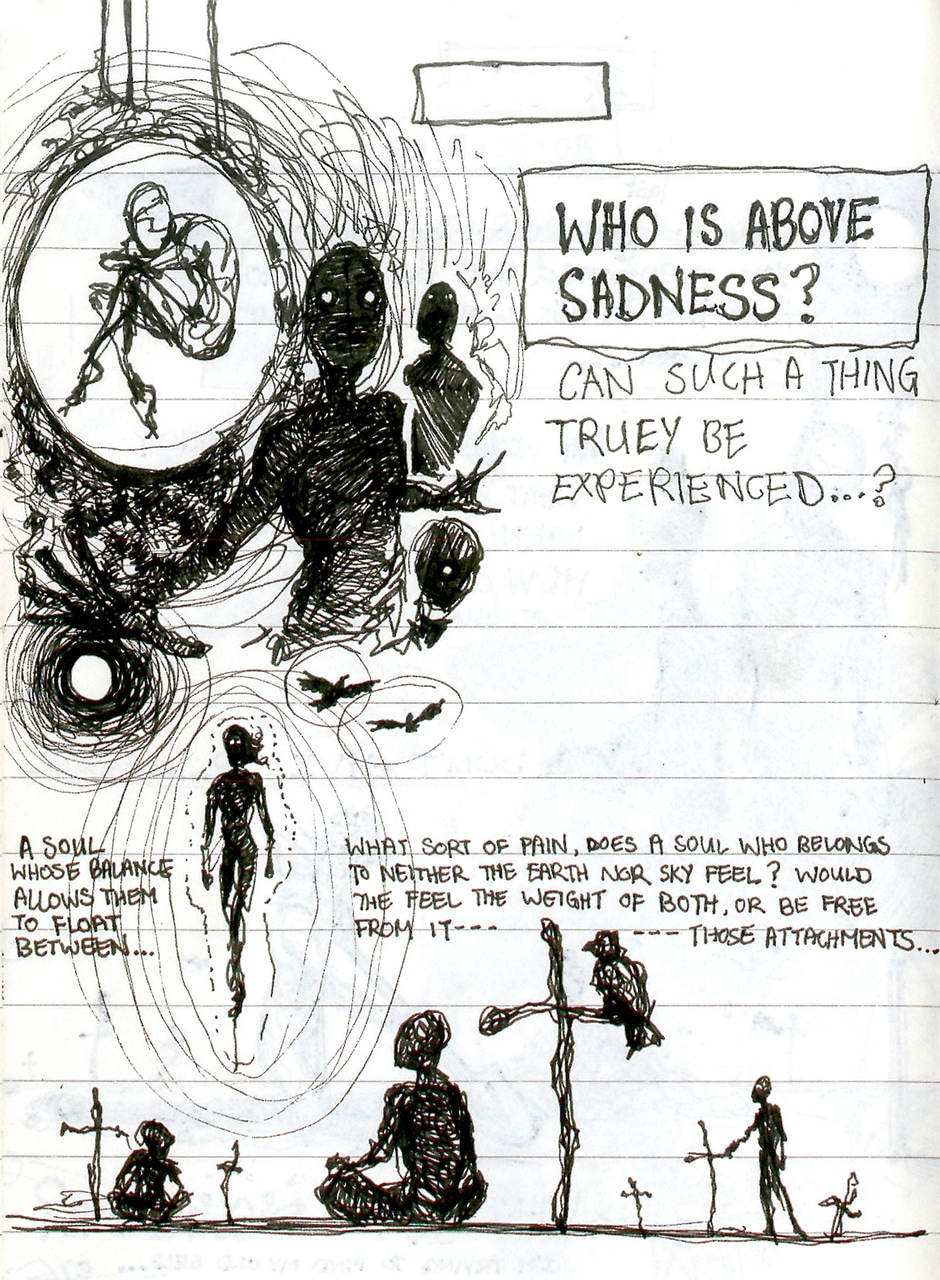 WHO IS ABOVE
SADNESS?
CAN SUCH A THING
TRUEY BE
EXPERIENCED...?
A SOUL
WHOSE BALANCE
ALLOWS THEM
TO FLOAT
BETWEEN...
WHAT SORT OF PAIN, DOES A SOUL WHO BELONGS
TO NEITHER THE EARTH NOR SKY FEEL? WOULD
THE FEEL THE WEIGHT OF BOTH, OR BE FREE
FROM IT---
--- THOSE ATTACHMENTS...